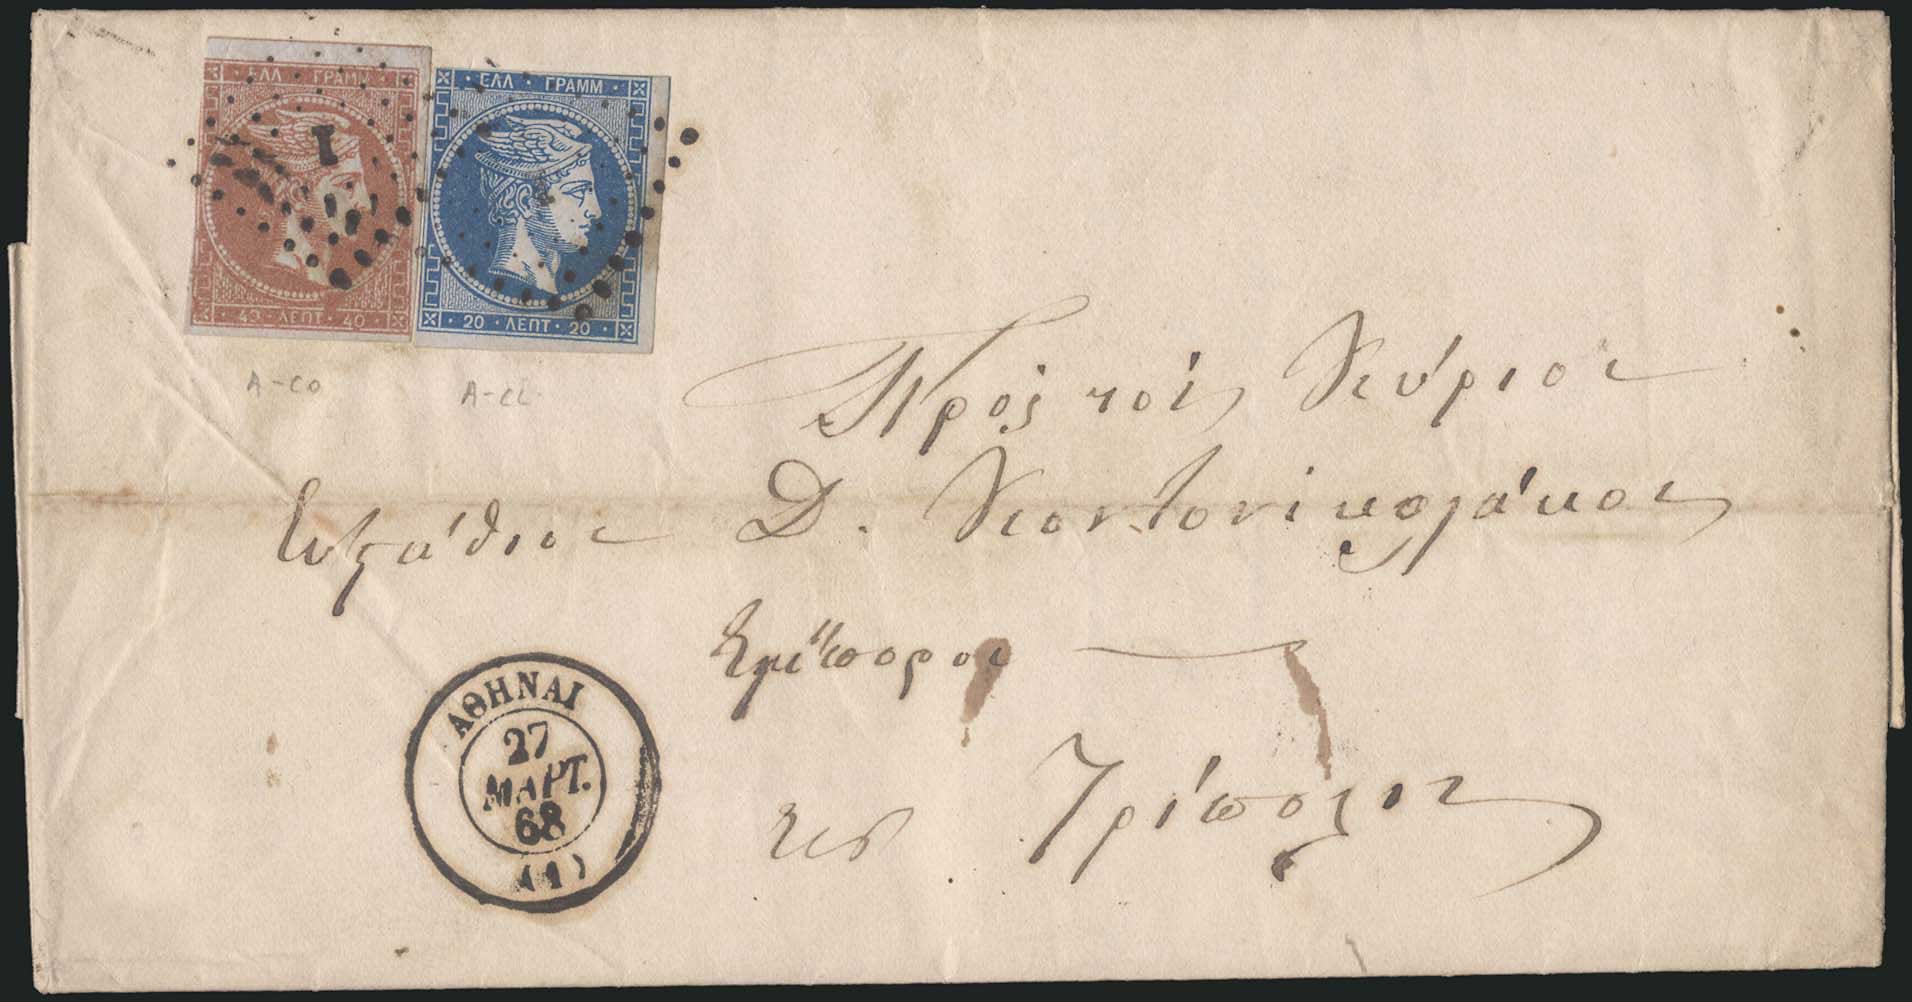 ΕΛΛ · ΓΡΑΜΜ
40 · ΛΕΠΤ · 40
1
ΕΛΛ · ΓΡΑΜΜ
20 · ΛΕΠΤ · 20
A-co
Πρὸς τὸν Κύριον
Εὐστάθιον D. Κοντονικολάκον
Ἔμπορον
εις Τρίπολιν
ΑΘΗΝΑΙ
27
ΜΑΡΤ.
68
(1)